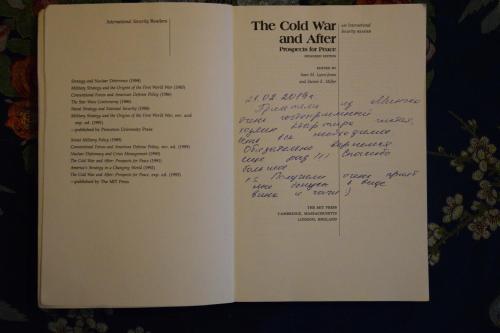 International Security Readers
Strategy and Nuclear Deterrence (1984)
Military Strategy and the Origins of the First World War (1985)
Conventional Forces and American Defense Policy (1986)
The Star Wars Controversy (1986)
Naval Strategy and National Security (1988)
Military Strategy and the Origins of the First World War, rev. and
exp. ed. (1991)
—published by Princeton University Press
Soviet Military Policy (1989)
Conventional Forces and American Defense Policy, rev. ed. (1989)
Nuclear Diplomacy and Crisis Management (1990)
The Cold War and After: Prospects for Peace (1991)
America's Strategy in a Changing World (1992)
The Cold War and After: Prospects for Peace, exp. ed. (1993)
—published by The MIT Press
The Cold War
and After
Prospects for Peace
EXPANDED EDITION
AN International
Security READER
EDITED BY
Sean M. Lynn-Jones
and Steven E. Miller
из Минска
очень
квартира
есть все необходимое
Обязательно вернемся
еще раз !!! Спасибо
большое
P.S. Получили очень
в виде
вина и :)
THE MIT PRESS
CAMBRIDGE, MASSACHUSETTS
LONDON, ENGLAND